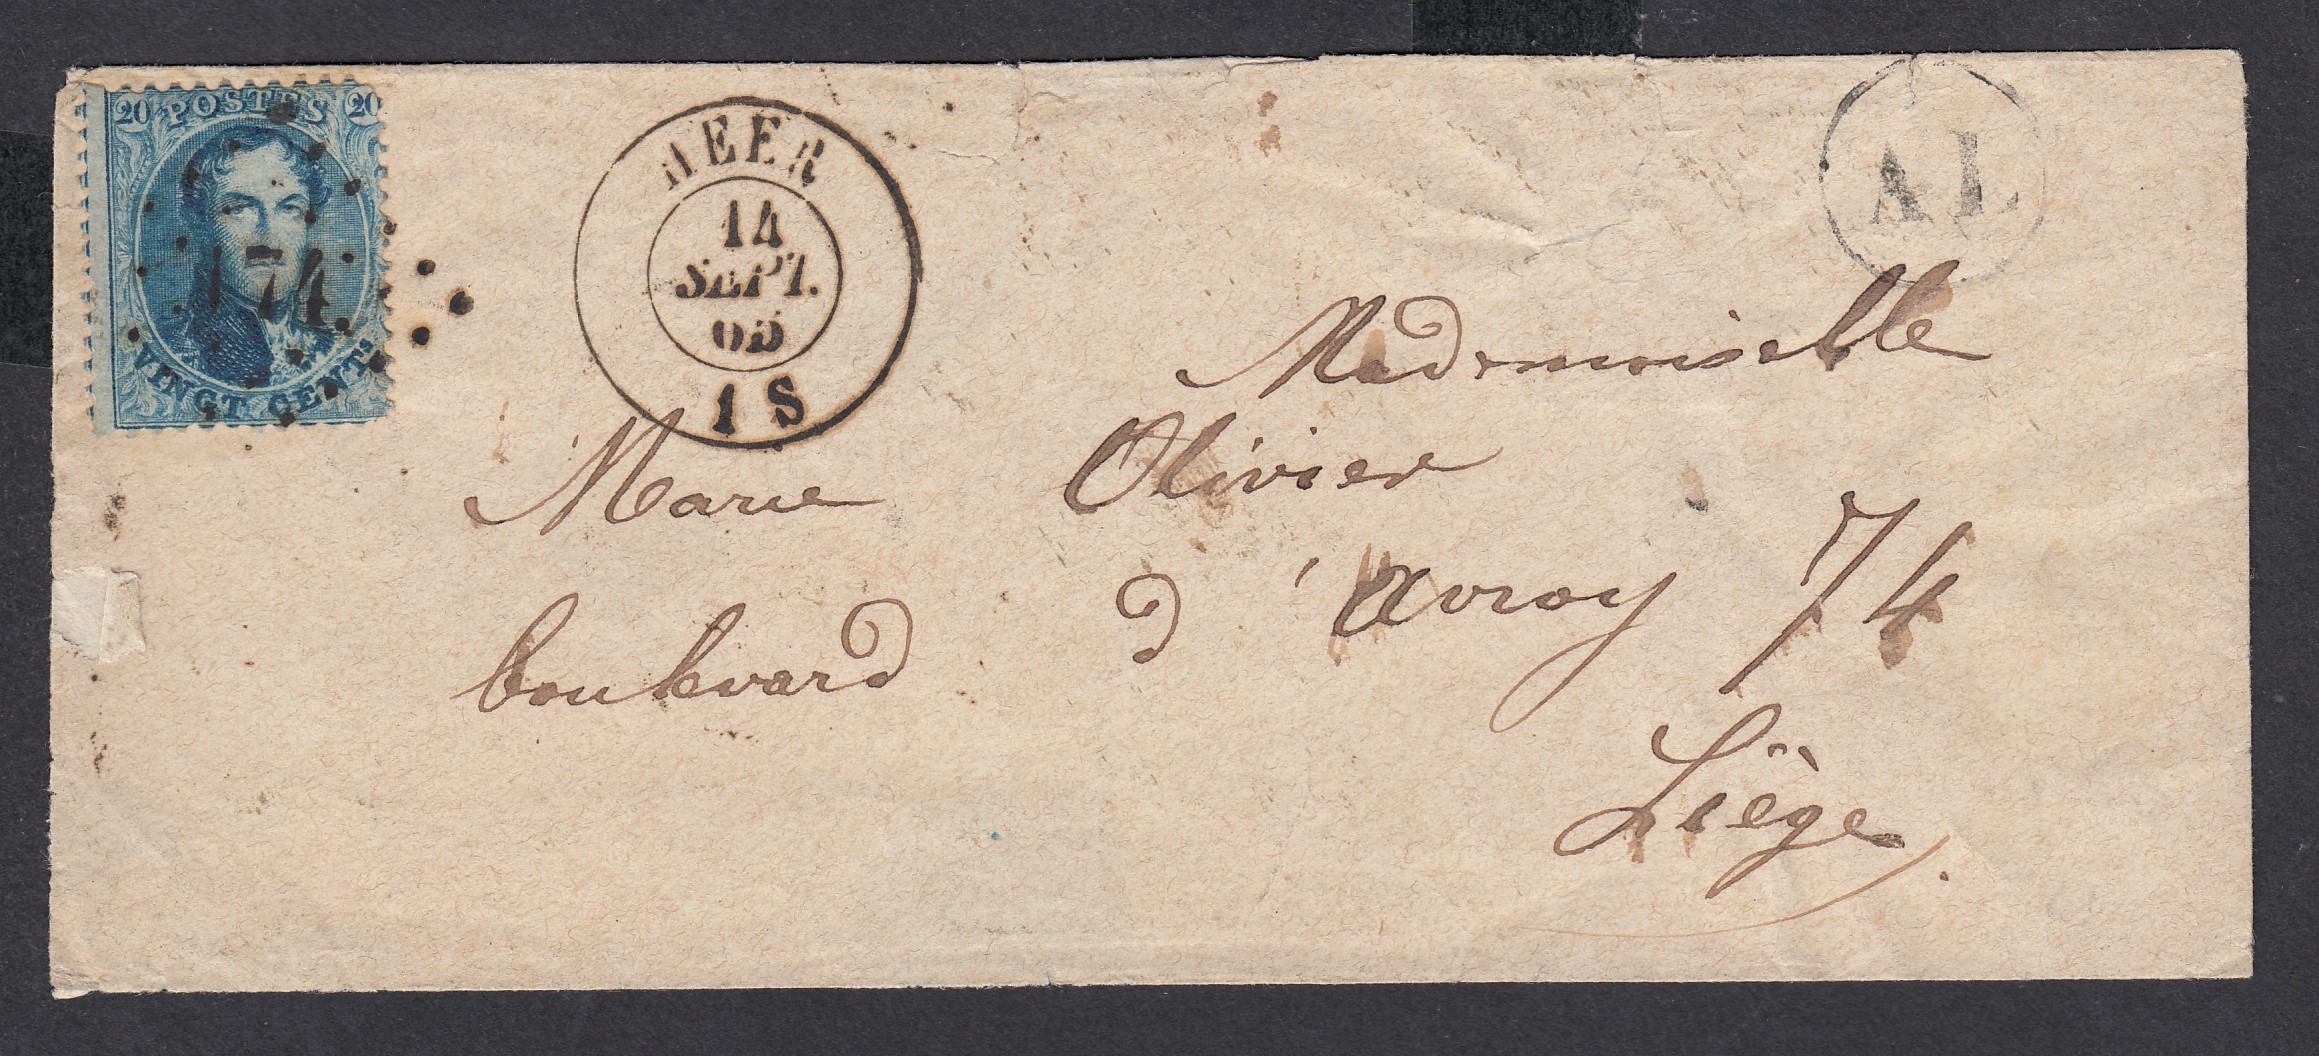 20 POSTES 20
174
VINGT CENTS
MEER
14
SEPT.
65
1 S
AL
Mademoiselle
Marie Olivier
boulevard d'Avroy 74
Liège